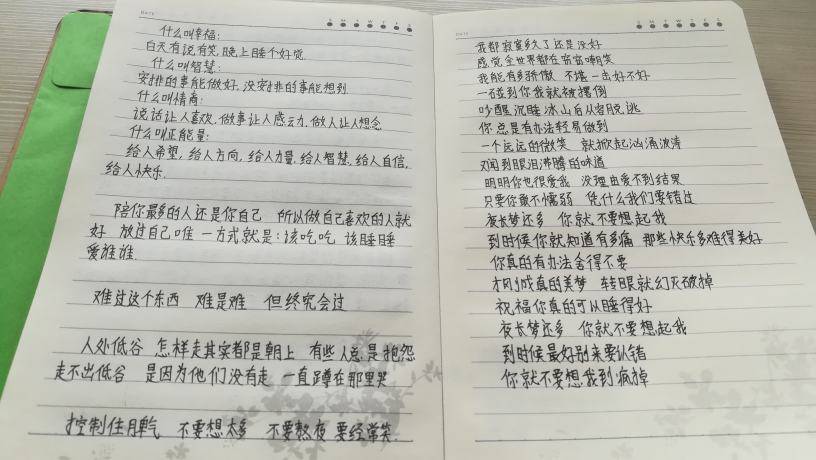 DATE
S M T W T F S
什么叫幸福:
白天有说有笑,晚上睡个好觉.
什么叫智慧:
安排的事能做好,没安排的事能想到.
什么叫情商:
说话让人喜欢,做事让人感动,做人让人想念
什么叫正能量:
给人希望,给人方向,给人力量,给人智慧,给人自信,
给人快乐.
陪你最多的人还是你自己 所以做自己喜欢的人就
好 放过自己唯一方式就是:该吃吃 该睡睡
爱谁谁.
难过这个东西 难是难 但终究会过
人处低谷 怎样走其实都是朝上 有些人总是抱怨
走不出低谷 是因为他们没有走 一直蹲在那里哭
控制住脾气 不要想太多 不要熬夜 要经常笑.
DATE
S M T W T F S
我都寂寞多久了还是没好
感觉全世界都在窃窃嘲笑
我能有多骄傲 不堪一击好不好
一碰到你我就被撂倒
吵醒沉睡冰山后从容脱逃
你总是有办法轻易做到
一个远远的微笑 就掀起汹涌波涛
又闻到眼泪沸腾的味道
明明你也很爱我 没理由爱不到结果
只要你敢不懦弱 凭什么我们要错过
夜长梦还多 你就不要想起我
到时候你就知道有多痛 那些快乐多难得美好
你真的有办法舍得不要
才刚成真的美梦 转眼就幻灭破掉
祝福你真的可以睡得好
夜长梦还多 你就不要想起我
到时候最好别来要认错
你就不要想我到疯掉